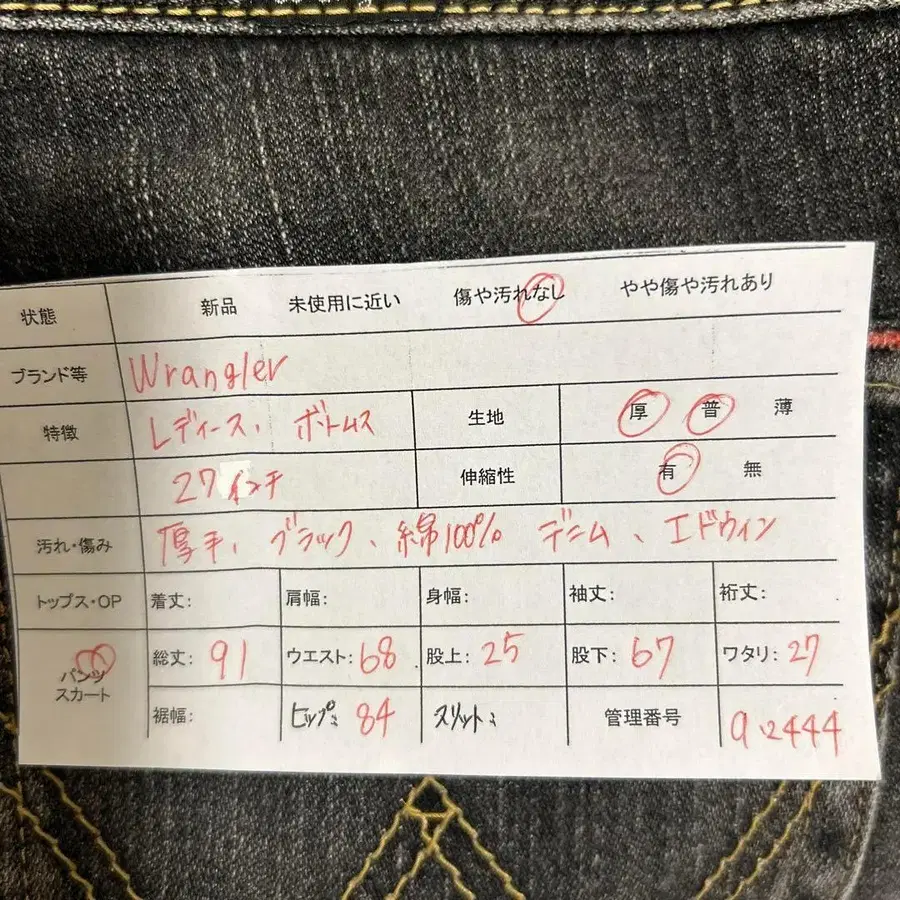 状態 新品 未使用に近い 傷や汚れなし やや傷や汚れあり
ブランド等 Wrangler
特徴 レディース、ボトムス 生地 厚 普 薄
27インチ 伸縮性 有 無
汚れ・傷み 厚手、ブラック、綿100% デニム、エドウィン
トップス・OP 着丈: 肩幅: 身幅: 袖丈: 裄丈:
パンツ 総丈: 91 ウエスト: 68 股上: 25 股下: 67 ワタリ: 27
スカート
裾幅: ヒップ: 84 スリット: 管理番号 9.2444